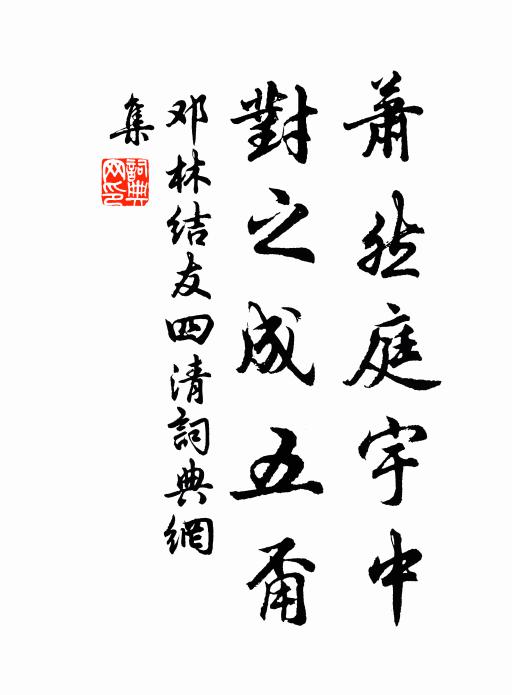 蕭然庭宇中
對之成五甭
邓林结友四清詞典網
集
詞典
网印